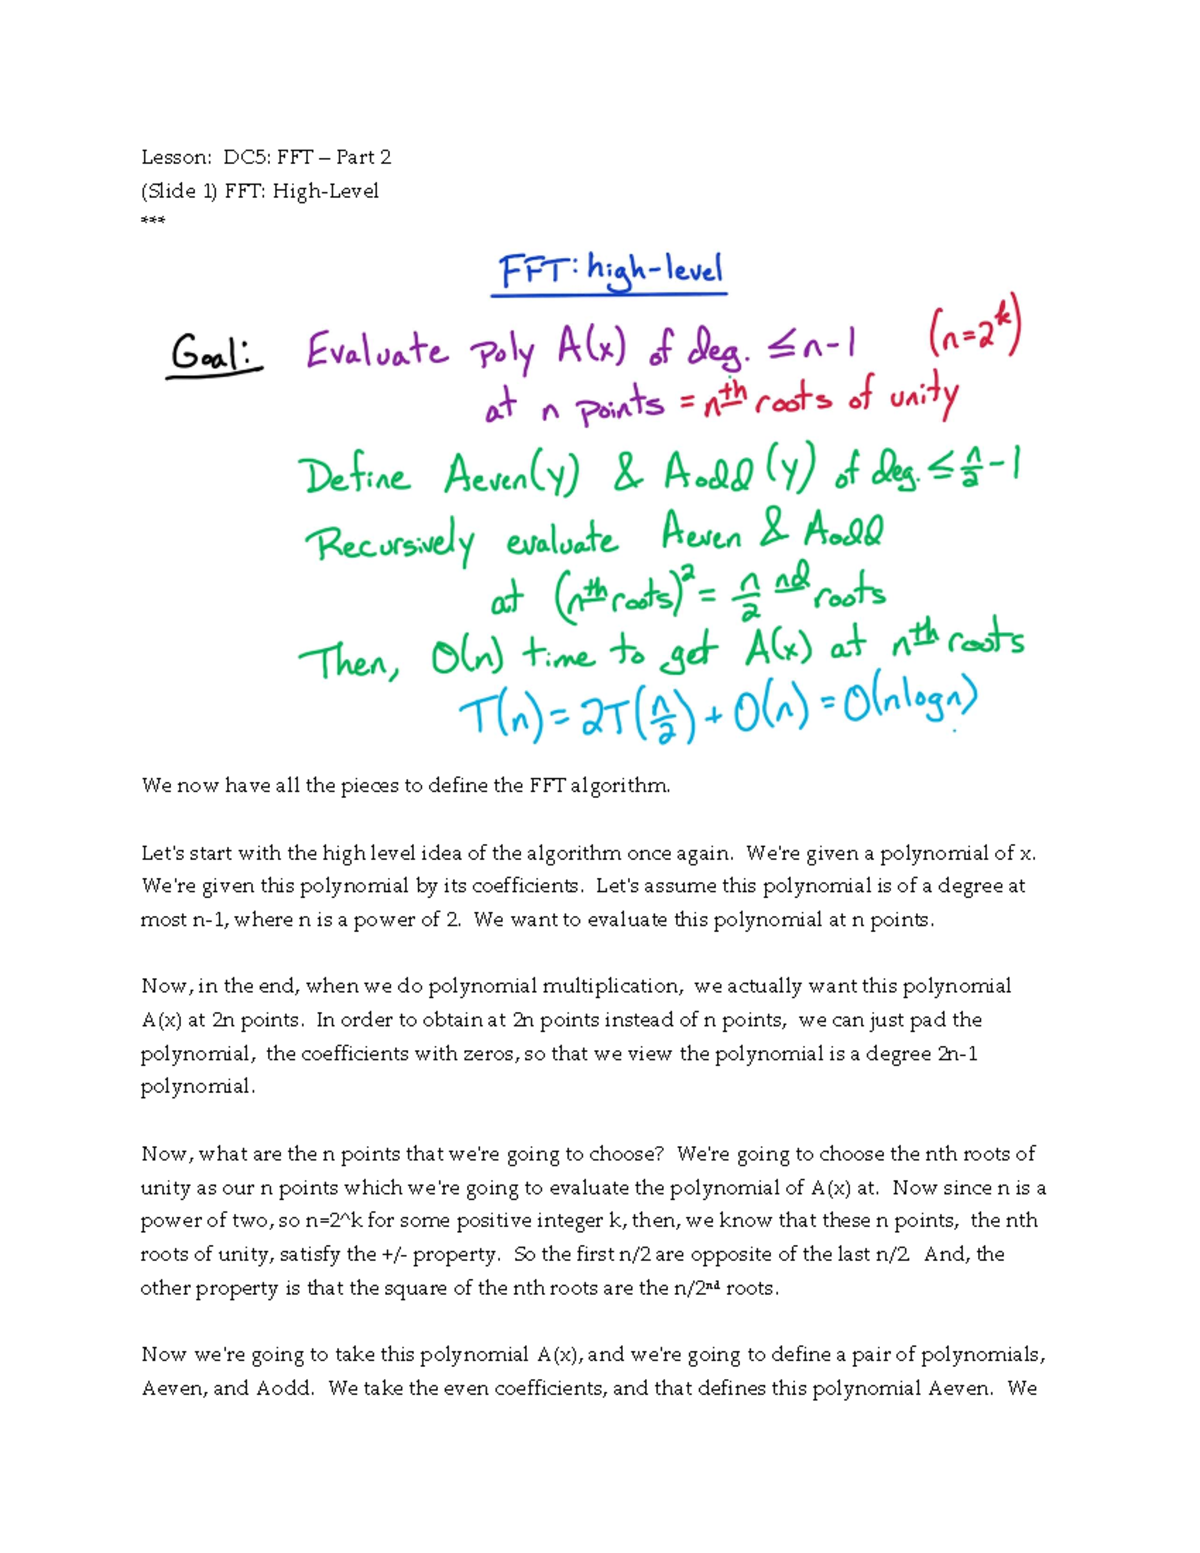 Lesson:  DC5: FFT – Part 2
(Slide 1) FFT: High-Level
***
FFT: high-level
Goal: Evaluate poly A(x) of deg. ≤ n-1 (n=2^k)
at n points = nth roots of unity
Define Aeven(y) & Aodd(y) of deg. ≤ n/2 - 1
Recursively evaluate Aeven & Aodd
at (nth roots)² = n/2 nd roots
Then, O(n) time to get A(x) at nth roots
T(n) = 2T(n/2) + O(n) = O(nlogn)
We now have all the pieces to define the FFT algorithm.
Let's start with the high level idea of the algorithm once again.  We're given a polynomial of x.
We're given this polynomial by its coefficients.  Let's assume this polynomial is of a degree at
most n-1, where n is a power of 2.  We want to evaluate this polynomial at n points.
Now, in the end, when we do polynomial multiplication,  we actually want this polynomial
A(x) at 2n points.  In order to obtain at 2n points instead of n points,  we can just pad the
polynomial,  the coefficients with zeros, so that we view the polynomial is a degree 2n-1
polynomial.
Now, what are the n points that we're going to choose?  We're going to choose the nth roots of
unity as our n points which we're going to evaluate the polynomial of A(x) at.  Now since n is a
power of two, so n=2^k for some positive integer k, then, we know that these n points,  the nth
roots of unity, satisfy the +/- property.  So the first n/2 are opposite of the last n/2.  And, the
other property is that the square of the nth roots are the n/2ⁿᵈ roots.
Now we're going to take this polynomial A(x), and we're going to define a pair of polynomials,
Aeven, and Aodd.  We take the even coefficients, and that defines this polynomial Aeven.  We